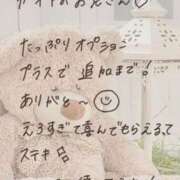 サイトのお兄さん♡
たっぷりオプション
プラスで追加まで！
ありがと〜☺
えろすぎて喜んでもらえるって
ステキ